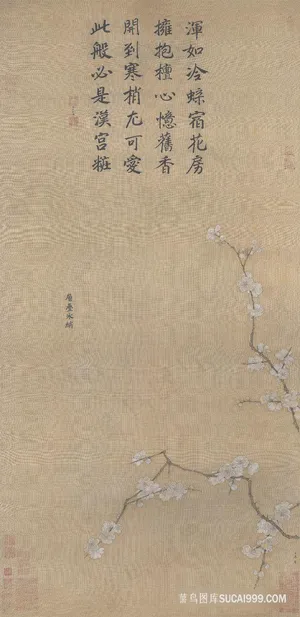 渾如冷蝶宿花房
擁抱檀心憶舊香
開到寒梢尤可愛
此般必是漢宮粧
層疊冰綃
菜鸟图库SUCAI999.COM